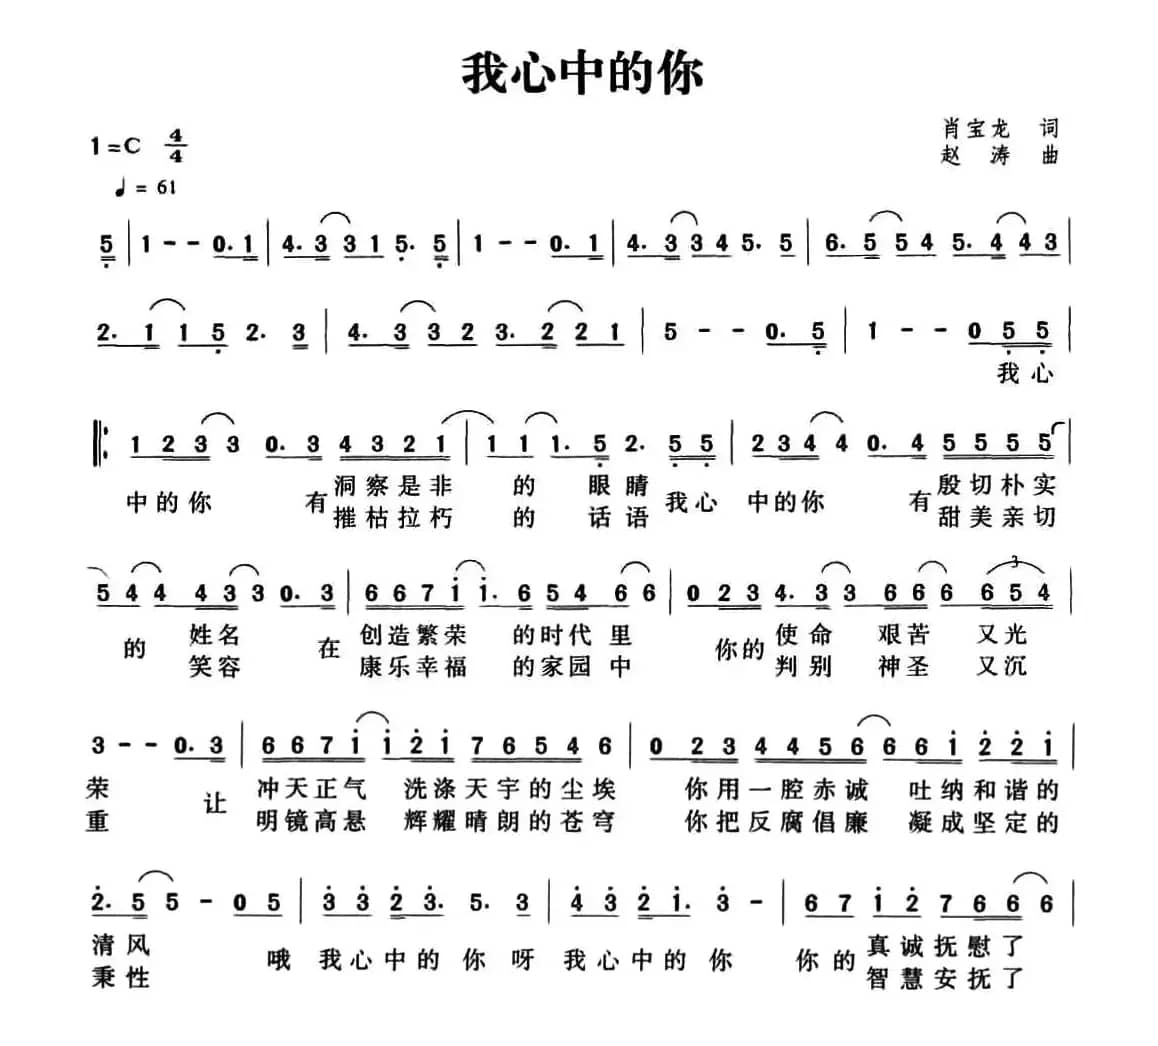 我心中的你
肖宝龙 词
1=C 4/4
赵 涛 曲
♩= 61
5 | 1 - - 0. 1 | 4. 3 3 1 5. 5 | 1 - - 0. 1 | 4. 3 3 4 5. 5 | 6. 5 5 4 5. 4 4 3 |
2. 1 1 5 2. 3 | 4. 3 3 2 3. 2 2 1 | 5 - - 0. 5 | 1 - - 0 5 5 |
我心
1 2 3 3 0. 3 4 3 2 1 | 1 1 1. 5 2. 5 5 | 2 3 4 4 0. 4 5 5 5 5 |
中的你 有洞察是非 的 眼睛我心 中的你 有殷切朴实
摧枯拉朽 的 话语 甜美亲切
5 4 4 4 3 3 0. 3 | 6 6 7 i i. 6 5 4 6 6 | 0 2 3 4. 3 3 6 6 6 6 5 4 |
3
的 姓名 在 创造繁荣 的时代里 你的使命 艰苦 又光
笑容 康乐幸福 的家园中 判别 神圣 又沉
3 - - 0. 3 | 6 6 7 i i 2 i 7 6 5 4 6 | 0 2 3 4 4 5 6 6 6 i 2 2 i |
荣 让 冲天正气 洗涤天宇的尘埃 你用一腔赤诚 吐纳和谐的
重 明镜高悬 辉耀晴朗的苍穹 你把反腐倡廉 凝成坚定的
2. 5 5 - 0 5 | 3 3 2 3. 5. 3 | 4 3 2 1. 3 - | 6 7 i 2 7 6 6 6 |
清风 哦 我心中的你呀 我心中的你 你的真诚抚慰了
秉性 智慧安抚了